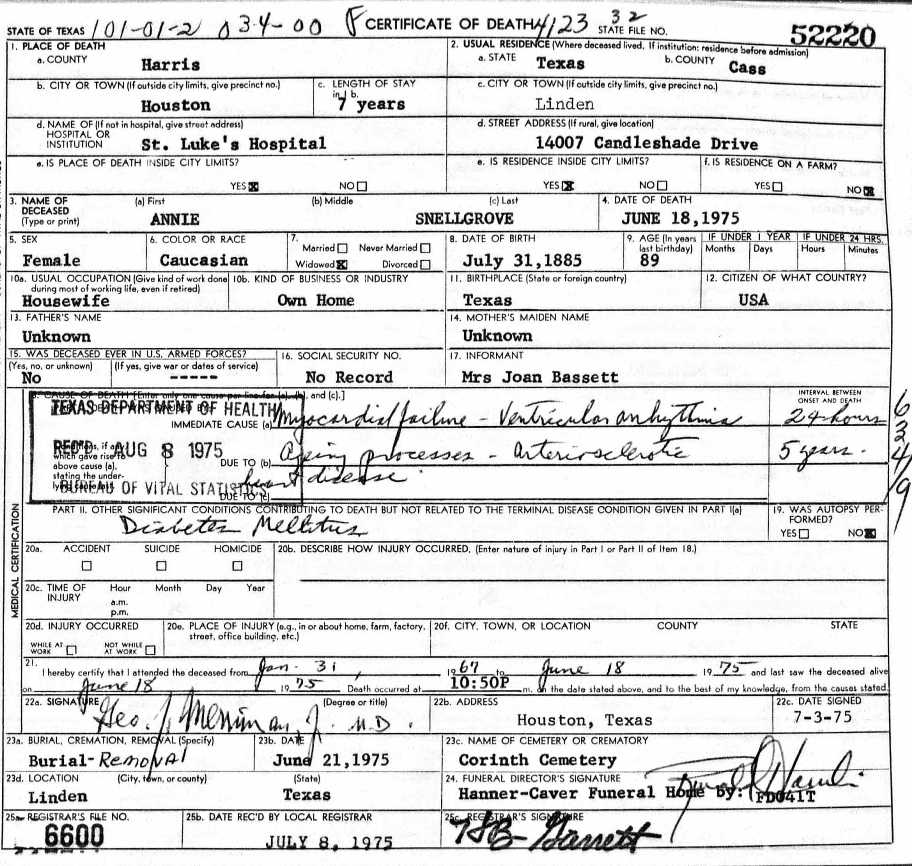 STATE OF TEXAS 101-01-2 034-00 CERTIFICATE OF DEATH 4123 32 STATE FILE NO. 52220
1. PLACE OF DEATH
a. COUNTY Harris
2. USUAL RESIDENCE (Where deceased lived. If institution: residence before admission)
a. STATE Texas b. COUNTY Cass
b. CITY OR TOWN (If outside city limits, give precinct no.) Houston
c. LENGTH OF STAY in 1 b. 7 years
c. CITY OR TOWN (If outside city limits, give precinct no.) Linden
d. NAME OF (If not in hospital, give street address)
HOSPITAL OR
INSTITUTION St. Luke's Hospital
d. STREET ADDRESS (If rural, give location)
14007 Candleshade Drive
e. IS PLACE OF DEATH INSIDE CITY LIMITS?
YES NO
e. IS RESIDENCE INSIDE CITY LIMITS?
YES NO
f. IS RESIDENCE ON A FARM?
YES NO
3. NAME OF DECEASED (Type or print)
(a) First (b) Middle (c) Last
ANNIE SNELLGROVE
4. DATE OF DEATH
JUNE 18,1975
5. SEX
Female
6. COLOR OR RACE
Caucasian
7.
Married Never Married
Widowed Divorced
8. DATE OF BIRTH
July 31,1885
9. AGE (In years last birthday)
89
IF UNDER 1 YEAR
Months Days
IF UNDER 24 HRS.
Hours Minutes
10a. USUAL OCCUPATION (Give kind of work done during most of working life, even if retired)
Housewife
10b. KIND OF BUSINESS OR INDUSTRY
Own Home
11. BIRTHPLACE (State or foreign country)
Texas
12. CITIZEN OF WHAT COUNTRY?
USA
13. FATHER'S NAME
Unknown
14. MOTHER'S MAIDEN NAME
Unknown
15. WAS DECEASED EVER IN U.S. ARMED FORCES?
(Yes, no, or unknown) (If yes, give war or dates of service)
No -----
16. SOCIAL SECURITY NO.
No Record
17. INFORMANT
Mrs Joan Bassett
CAUSE OF DEATH [Enter only one cause per line for (a), (b), and (c).]
INTERVAL BETWEEN
ONSET AND DEATH
TEXAS DEPARTMENT OF HEALTH
REC'D AUG 8 1975
BUREAU OF VITAL STATISTICS
IMMEDIATE CAUSE (a) Myocardial failure - Ventricular arrhythmia 24 hours
Conditions, if any which gave rise to above cause (a), stating the under-
DUE TO (b) Aging processes - arteriosclerotic 5 years.
heart disease
DUE TO (c)
6349
MEDICAL CERTIFICATION
PART II. OTHER SIGNIFICANT CONDITIONS CONTRIBUTING TO DEATH BUT NOT RELATED TO THE TERMINAL DISEASE CONDITION GIVEN IN PART I(a)
Diabetes Mellitus
19. WAS AUTOPSY PERFORMED?
YES NO
20a. ACCIDENT SUICIDE HOMICIDE
20b. DESCRIBE HOW INJURY OCCURRED. (Enter nature of injury in Part I or Part II of Item 18.)
20c. TIME OF INJURY
Hour Month Day Year
a.m.
p.m.
20d. INJURY OCCURRED
WHILE AT WORK NOT WHILE AT WORK
20e. PLACE OF INJURY (e.g., in or about home, farm, factory, street, office building, etc.)
20f. CITY, TOWN, OR LOCATION COUNTY STATE
21.
I hereby certify that I attended the deceased from Jan. 31, 1967 to June 18 1975 and last saw the deceased alive
on June 18 1975 Death occurred at 10:50P m. on the date stated above, and to the best of my knowledge, from the causes stated
22a. SIGNATURE (Degree or title)
Geo. J. Merriman, Jr. M.D.
22b. ADDRESS
Houston, Texas
22c. DATE SIGNED
7-3-75
23a. BURIAL, CREMATION, REMOVAL (Specify)
Burial-Removal
23b. DATE
June 21,1975
23c. NAME OF CEMETERY OR CREMATORY
Corinth Cemetery
23d. LOCATION (City, town, or county) (State)
Linden Texas
24. FUNERAL DIRECTOR'S SIGNATURE
Hanner-Caver Funeral Home By: FD041T
25a. REGISTRAR'S FILE NO.
6600
25b. DATE REC'D BY LOCAL REGISTRAR
JULY 8, 1975
25c. REGISTRAR'S SIGNATURE
Garrett